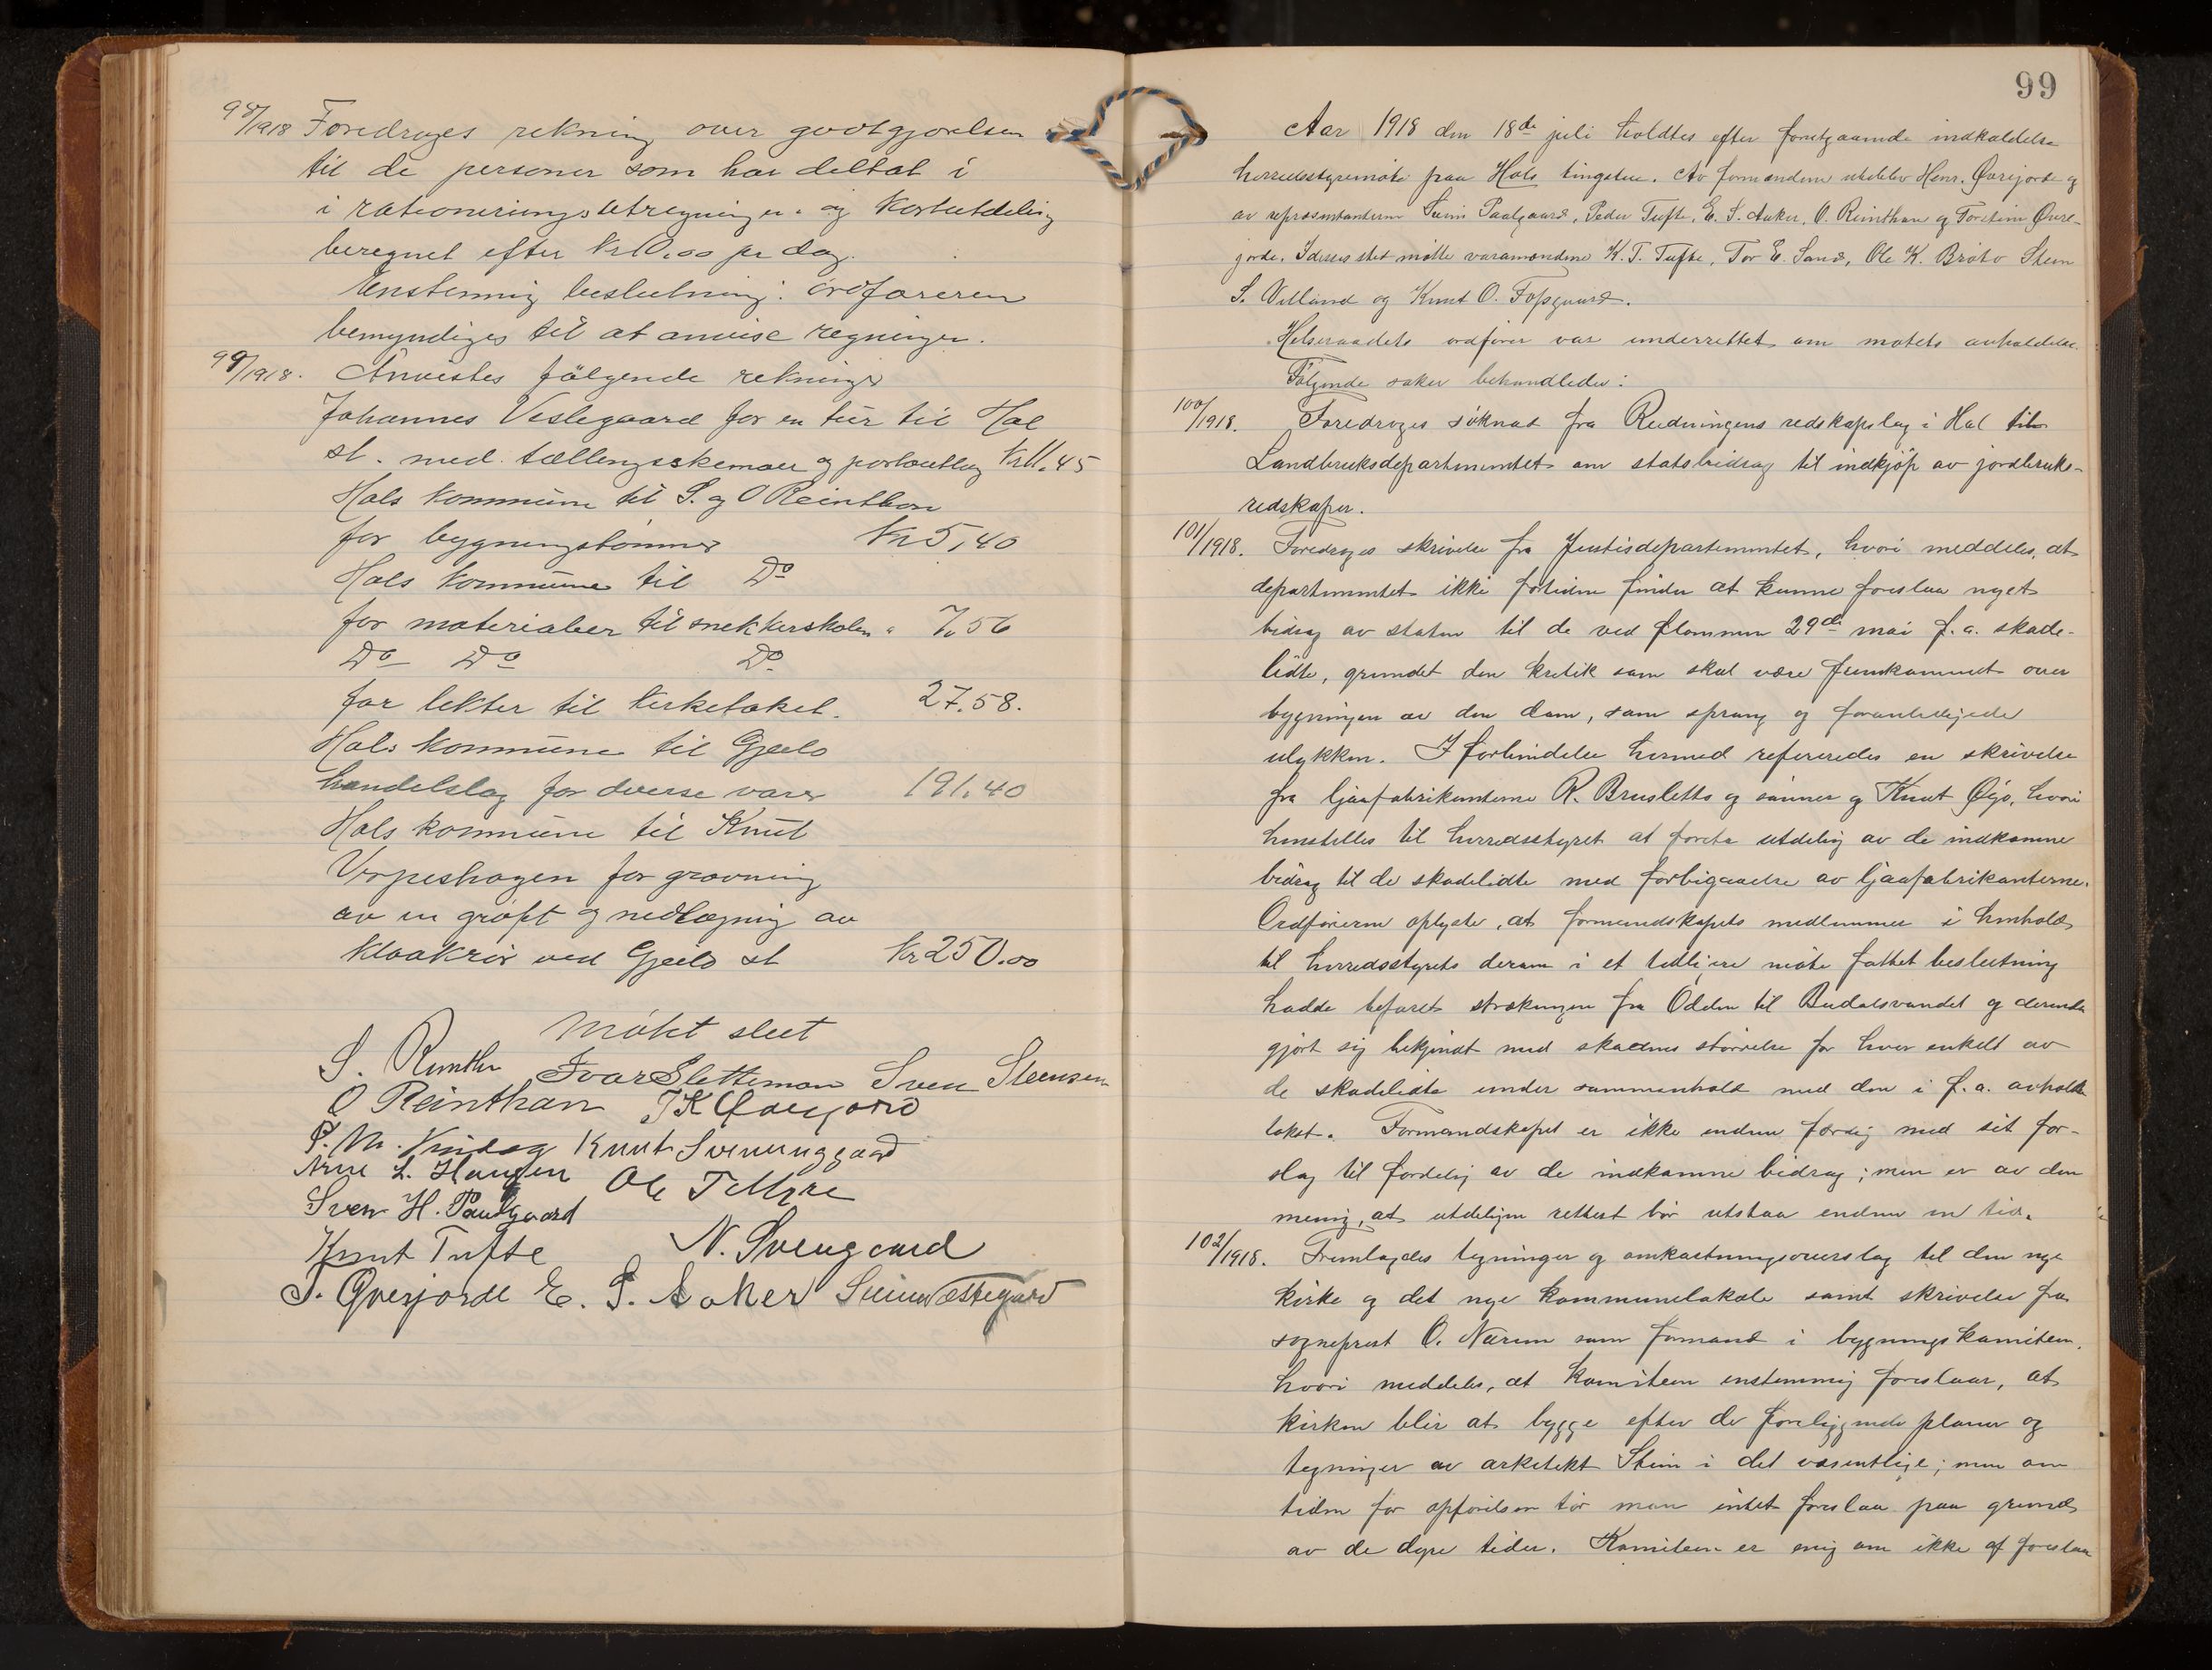 98/1918 Foredroges rekning over godtgjørelsen
til de personer som har deltat i
i rationeringsutregninger og kortutdeling
beregnet efter kr 10.00 pr dag.
Enstemmig beslutning: Ordføreren
bemyndiges til at anvise regninger.
99/1918. Anvistes følgende rekninger
Johannes Veslegaard for en tur til Hol
st. med tællingsskemaer og portoutlæg Kr 11.45
Hols kommune til S. og O Reinthon
for bygningstømmer Kr 5,40
Hols kommune til Do
for materialer til snekkerskolen " 7.56
Do Do Do
for lekter til kirketaket. 27.58.
Hols kommune til Gjeilo
handelslag for diverse varer 191.40
Hols kommune til Knut
Vropeshagen for gravning
av en grøft og nedlægning av
kloakrør ved Gjeilo st Kr 250.00
Møtet slut
S. Reinthon Ivar Slettemoen Sven Steensen
O Reinthon T K Øvrejorde
Knut Sveinunggaard
Arne L. Haugen Ole T Myre
Sven H. Paulgaard
Knut Tufte N. Svengaard
T. Øvrejorde E. S. Aaker Svein Vestegaard
99
Aar 1918 den 18de juli holdtes efter foretgaaende indkaldelse
herredsstyremøte paa Hols tingstue. Av formændene uteblev Henr. Øvrejorde og
av repræsentanterne Svein Paalgaard, Peder Tufte, E. S. Aaker, O. Reinthon og Torstein Øvre-
jorde. Ideres sted møtte varamændene K. T. Tufte, Tor E. Sand, Ole K. Bråto Sten
S. Villand og Knut O. Fossgaard.
Helseraadets ordfører var underrettet om møtets avholdelse.
Følgende saker behandledes:
100/1918. Foredroges søknad fra Rudningens redskapslag i Hol til
Landbruksdepartementet om statsbidrag til indkjøp av jordbruks-
redskaper.
101/1918. Foredroges skrivelse fra Justisdepartementet, hvori meddeles, at
departementet ikke fortiden finder at kunne foreslaa noget
bidrag av staten til de ved flommen 29de mai f.a. skade-
lidte, grundet den kritik som skal være fremkommet over
bygningen av den dam, som sprang og foranledigede
ulykken. I forbindelse hermed refereredes en skrivelse
fra ljaafabrikanterne R. Brusletto og sønner og Knut Øijo, hvori
henstilles til herredsstyret at foreta utdeling av de indkomne
bidrag til de skadelidte med forbigaaelse av ljaafabrikanterne.
Ordføreren oplyste, at formandskapets medlemmer i henhold
til herredsstyrets derom i et tidligere møte fattet beslutning
hadde befaret strækningen fra Odden til Budalsvandet og derunder
gjort sig bekjendt med skadens størrelse for hver enkelt av
de skadelidte under sammenhold med den i f.a. avholdte
takst. Formandskapet er ikke endnu færdig med sit for-
slag til fordeling av de indkomne bidrag; men er av den
mening, at utdelingen rettest bør utstaa endnu en tid.
102/1918. Fremlagdes tegninger og omkostningsoverslag til den nye
kirke og det nye kommunelokale samt skrivelse fra
sogneprest O. Nærum som formand i bygningskomiteen.
hvori meddeles, at komiteen enstemmig foreslaar, at
kirken blir at bygge efter de foreliggende planer og
tegninger av arkitekt Stein i det væsentlige; men om
tiden for opførelsen tør man intet foreslaa paa grund
av de dyre tider. Komiteen er enig om ikke at foreslaa